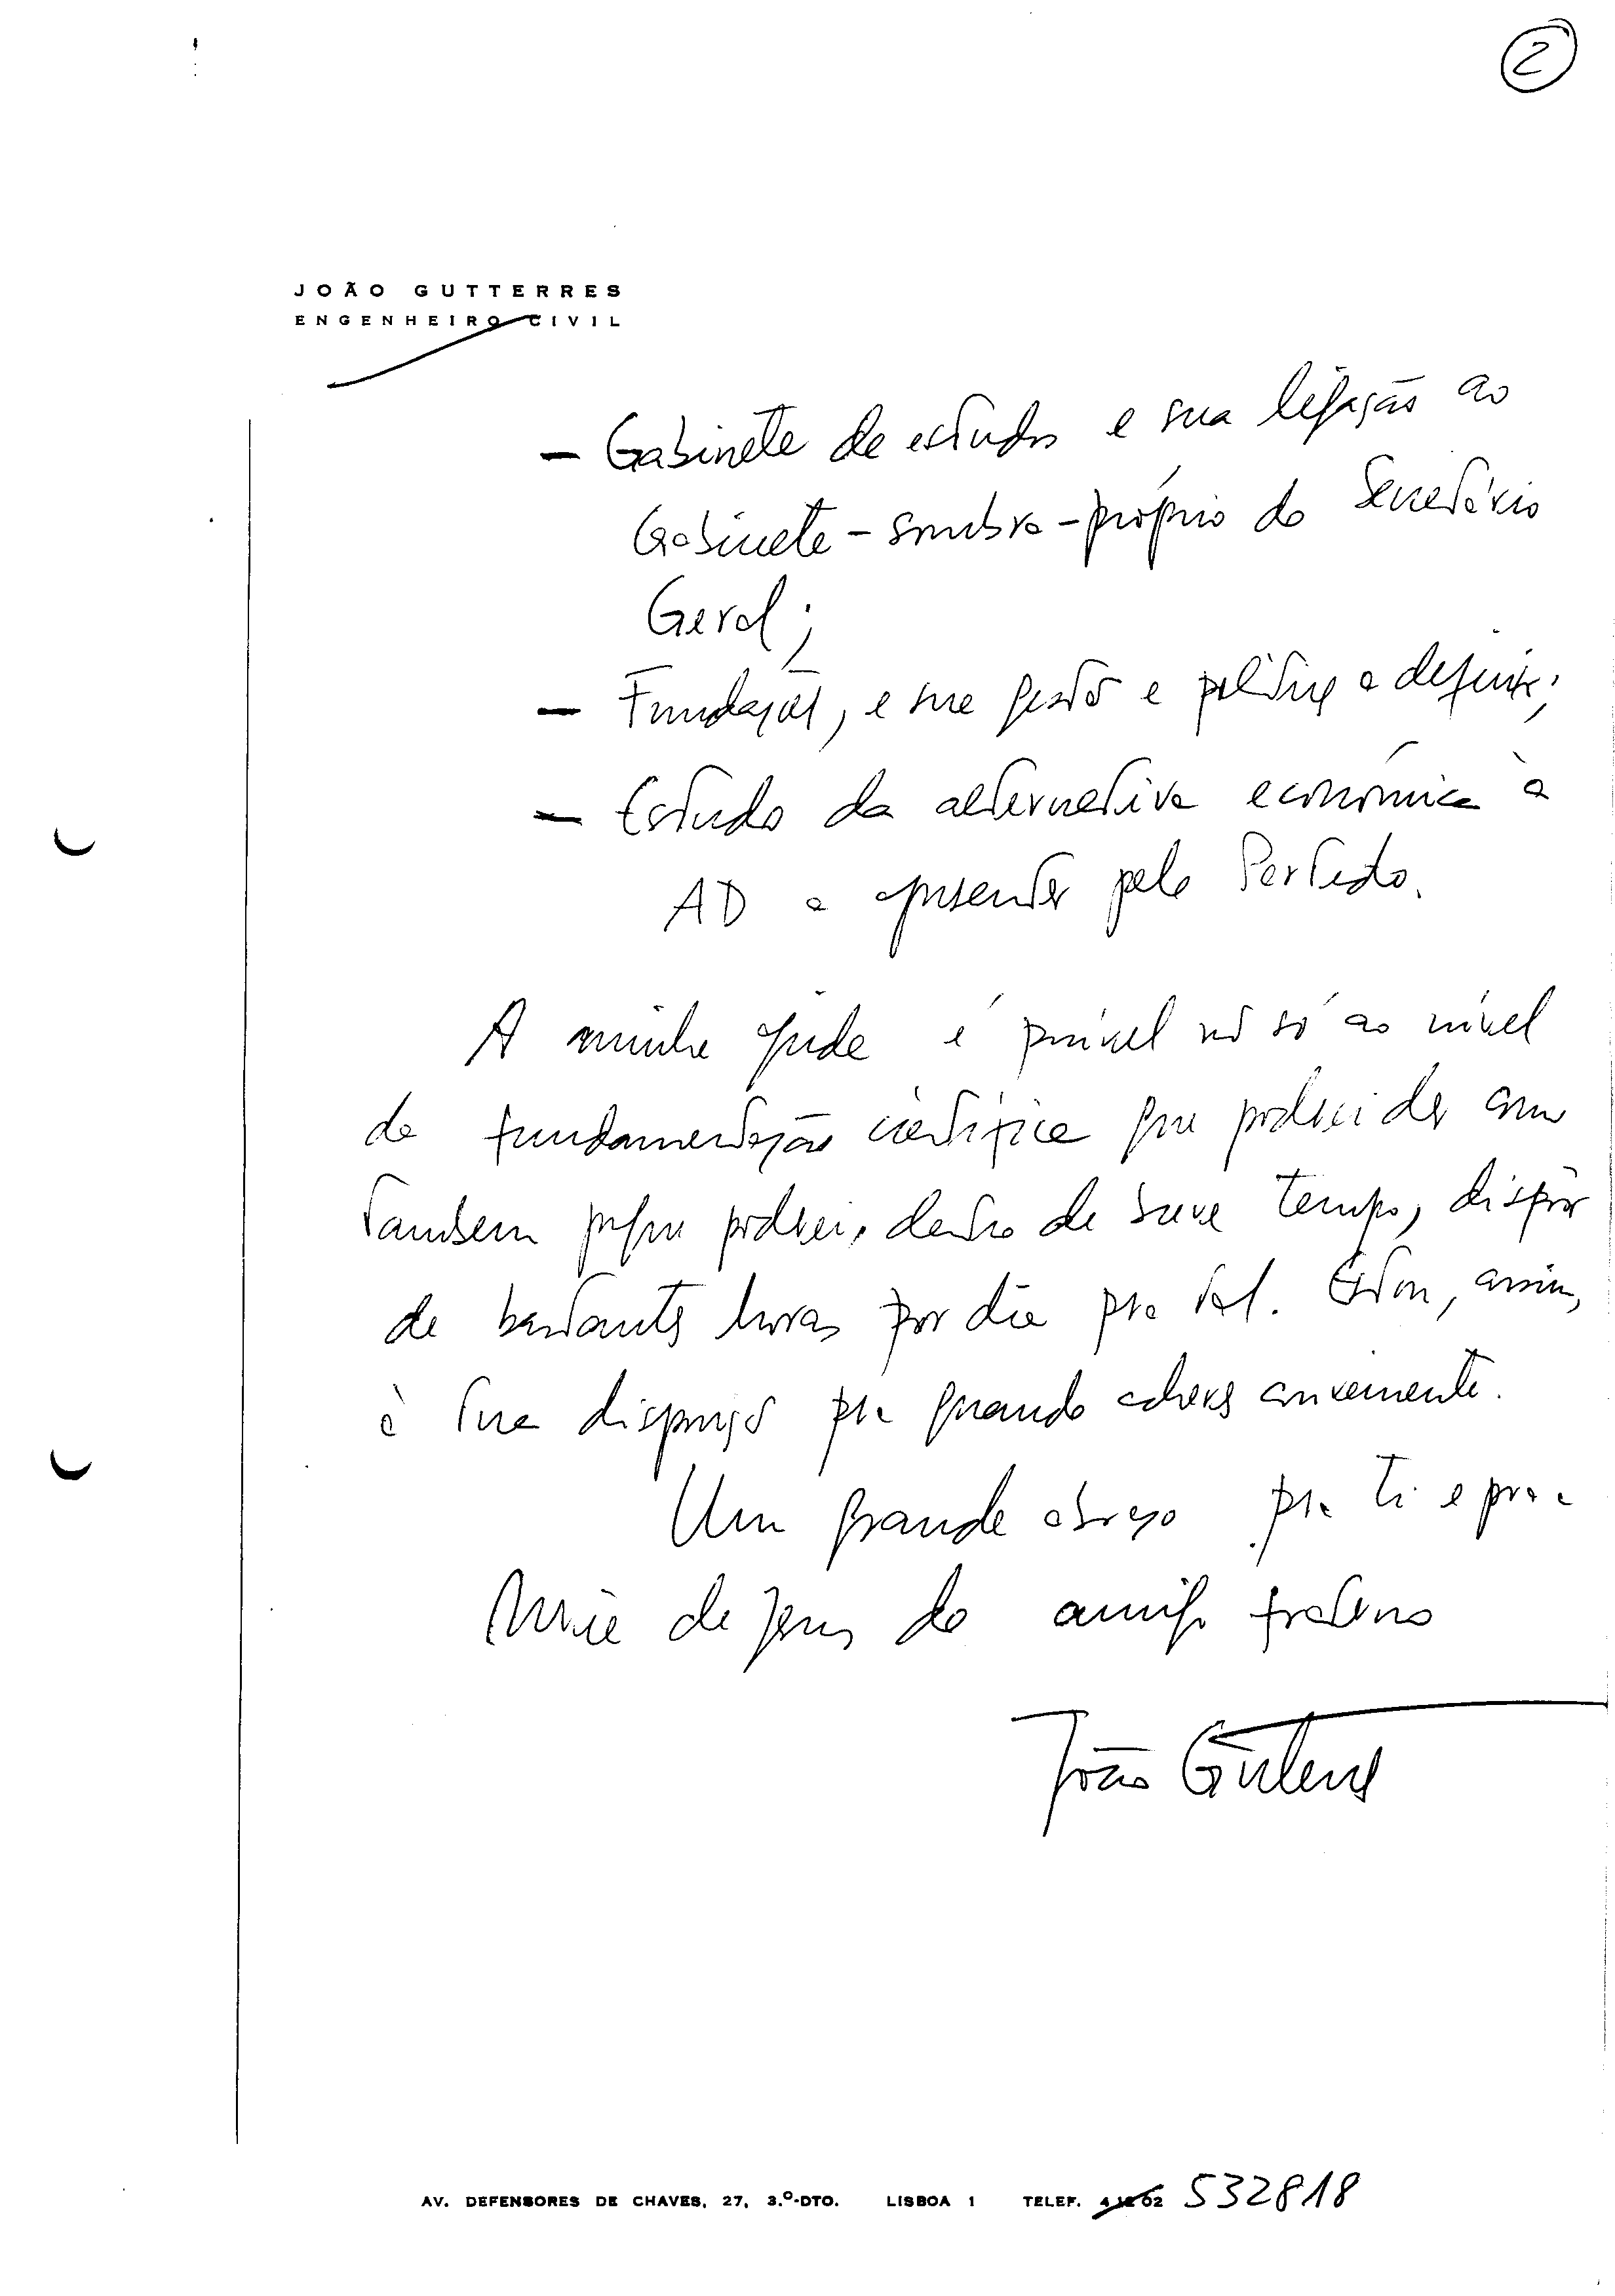 2
JOÃO GUTTERRES
ENGENHEIRO CIVIL
- Gabinete de estudos e sua ligação ao
Gabinete-sombra-próprio do Secretário
Geral;
- Fundação, e sua gestão e política a definir;
- Estudo da alternativa económica à
AD a apresentar pelo Partido.
A minha ajuda é possível não só ao nível
da fundamentação científica que poderei dar como
também porque poderei, dentro de breve tempo, dispôr
de bastantes horas por dia para tal. Estou, assim,
à tua disposição para quando achares conveniente.
Um grande abraço para ti e para a
Maria de Jesus do amigo fraterno
João Gutterres
AV. DEFENSORES DE CHAVES, 27, 3.º-DTO. LISBOA 1 TELEF. 532818